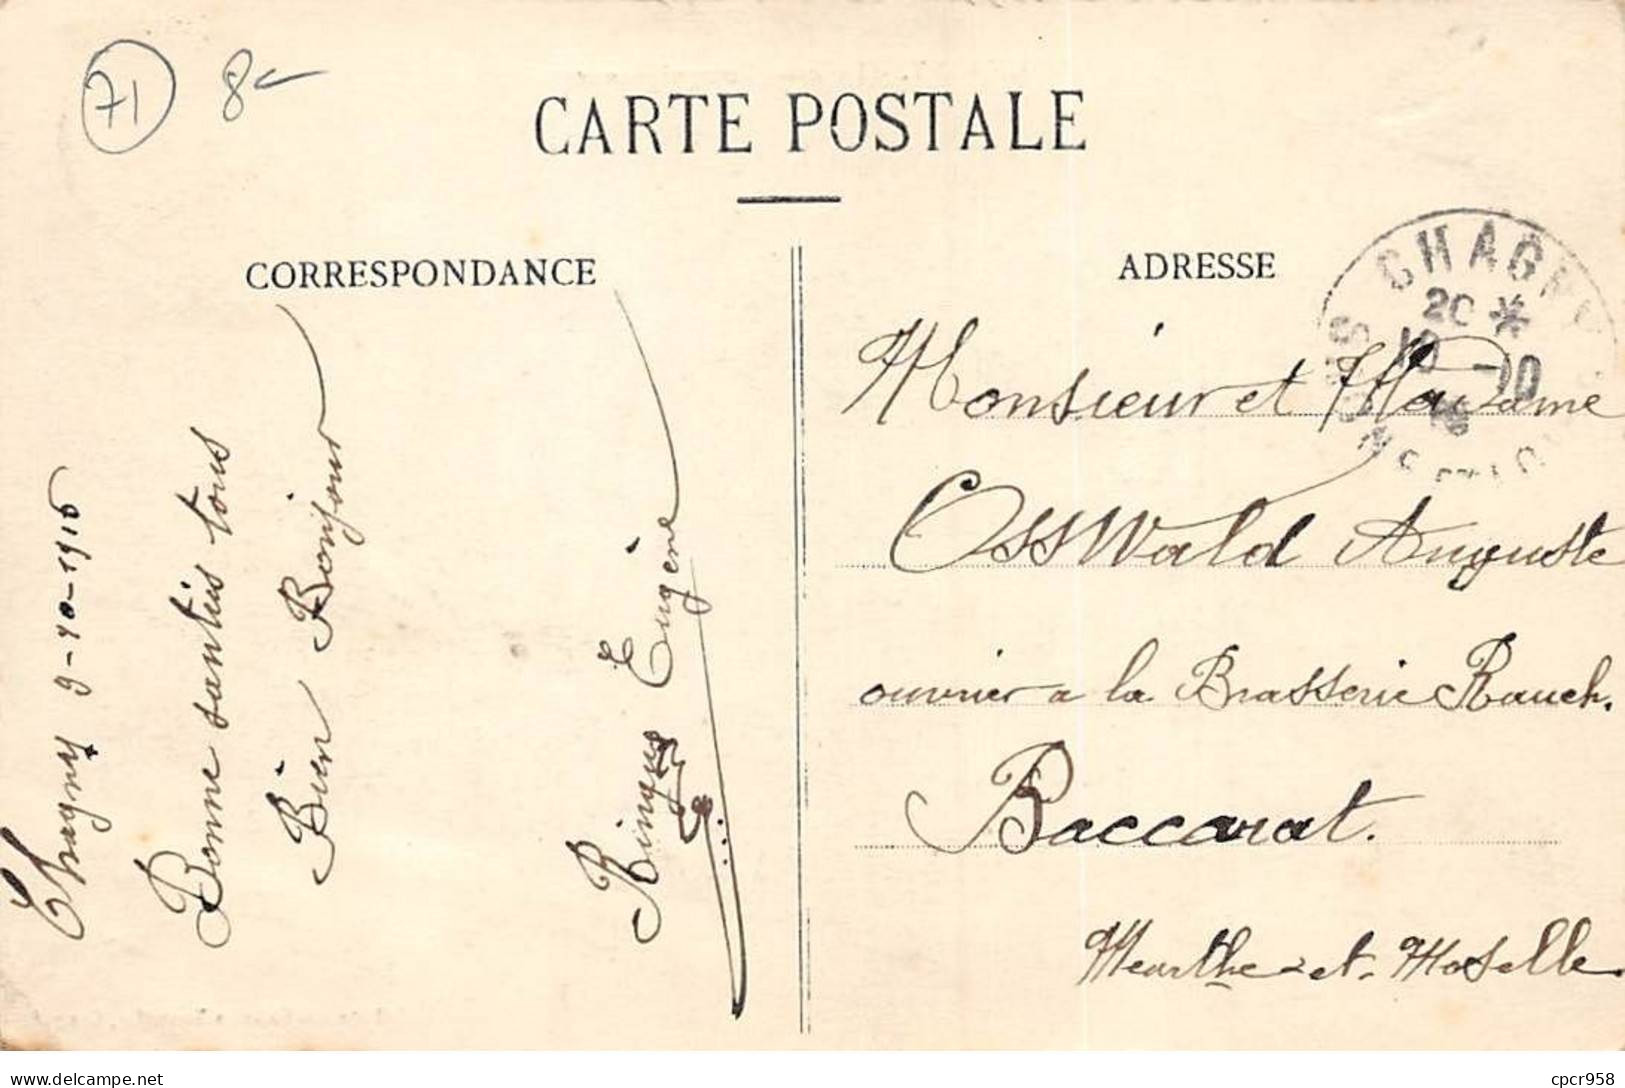 71 8
CARTE POSTALE
CORRESPONDANCE
ADRESSE
CHAGNY
20 *
10 -10
16
Chagny 9-10-1916
Bonne santée tous
Bien Bonjour
Eugène
Monsieur et Madame
Osswald Auguste
ouvrier a la Brasserie Rauch.
Baccarat.
Meurthe-et-Moselle
delcampe.net
cpcr958